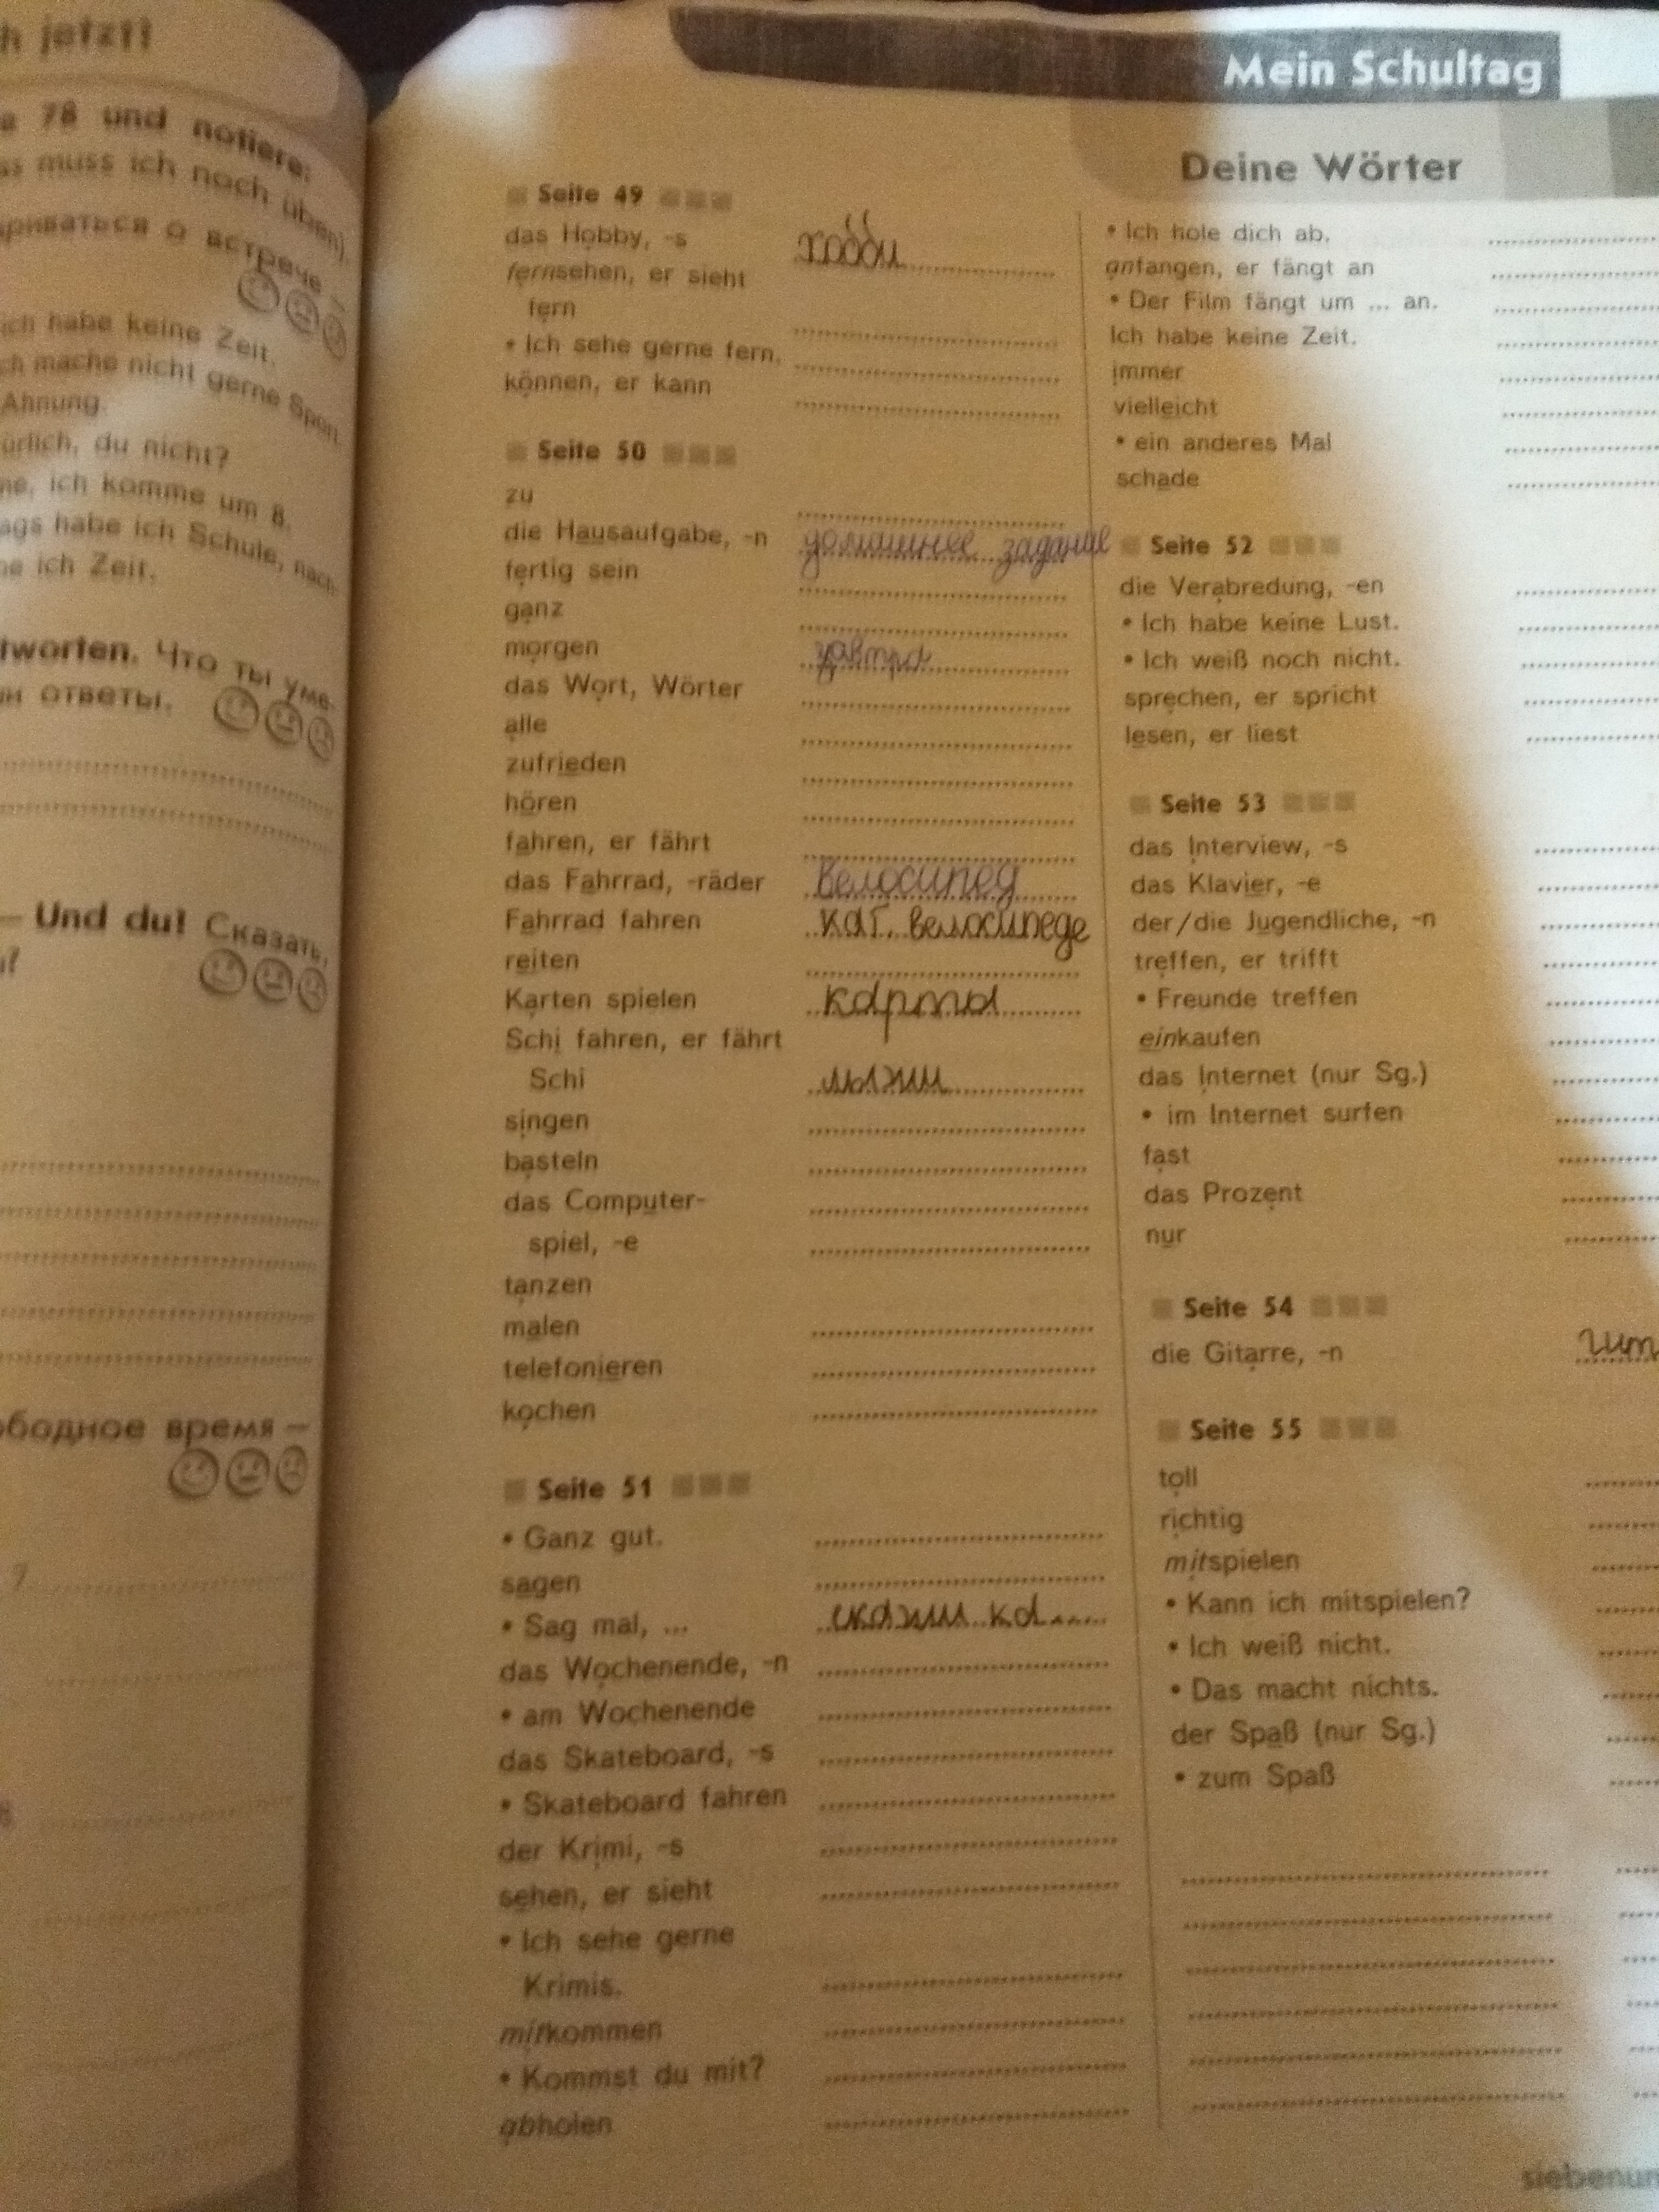 h jetzt!
78 und notiere:
as muss ich noch üben).
ариваться о встрече –
ich habe keine Zeit.
ch mache nicht gerne Sport.
Ahnung.
ürlich, du nicht?
me, ich komme um 8.
ags habe ich Schule, nach-
be ich Zeit.
tworten. Что ты уме-
ответы.
– Und du? Сказать,
ободное время –
7
8
Mein Schultag
Deine Wörter
Seite 49
das Hobby, -s хобби
fernsehen, er sieht
fern
• Ich sehe gerne fern.
können, er kann
Seite 50
zu
die Hausaufgabe, -n домашнее задание
fertig sein
ganz
morgen завтра
das Wort, Wörter
alle
zufrieden
hören
fahren, er fährt
das Fahrrad, -räder велосипед
Fahrrad fahren кат. велосипеде
reiten
Karten spielen карты
Schi fahren, er fährt
Schi лыжи
singen
basteln
das Computer-
spiel, -e
tanzen
malen
telefonieren
kochen
Seite 51
• Ganz gut.
sagen
• Sag mal, ... скажи ка
das Wochenende, -n
• am Wochenende
das Skateboard, -s
• Skateboard fahren
der Krimi, -s
sehen, er sieht
• Ich sehe gerne
Krimis.
mitkommen
• Kommst du mit?
abholen
• Ich hole dich ab.
anfangen, er fängt an
• Der Film fängt um ... an.
Ich habe keine Zeit.
immer
vielleicht
• ein anderes Mal
schade
Seite 52
die Verabredung, -en
• Ich habe keine Lust.
• Ich weiß noch nicht.
sprechen, er spricht
lesen, er liest
Seite 53
das Interview, -s
das Klavier, -e
der/die Jugendliche, -n
treffen, er trifft
• Freunde treffen
einkaufen
das Internet (nur Sg.)
• im Internet surfen
fast
das Prozent
nur
Seite 54
die Gitarre, -n гит
Seite 55
toll
richtig
mitspielen
• Kann ich mitspielen?
• Ich weiß nicht.
• Das macht nichts.
der Spaß (nur Sg.)
• zum Spaß
siebenun